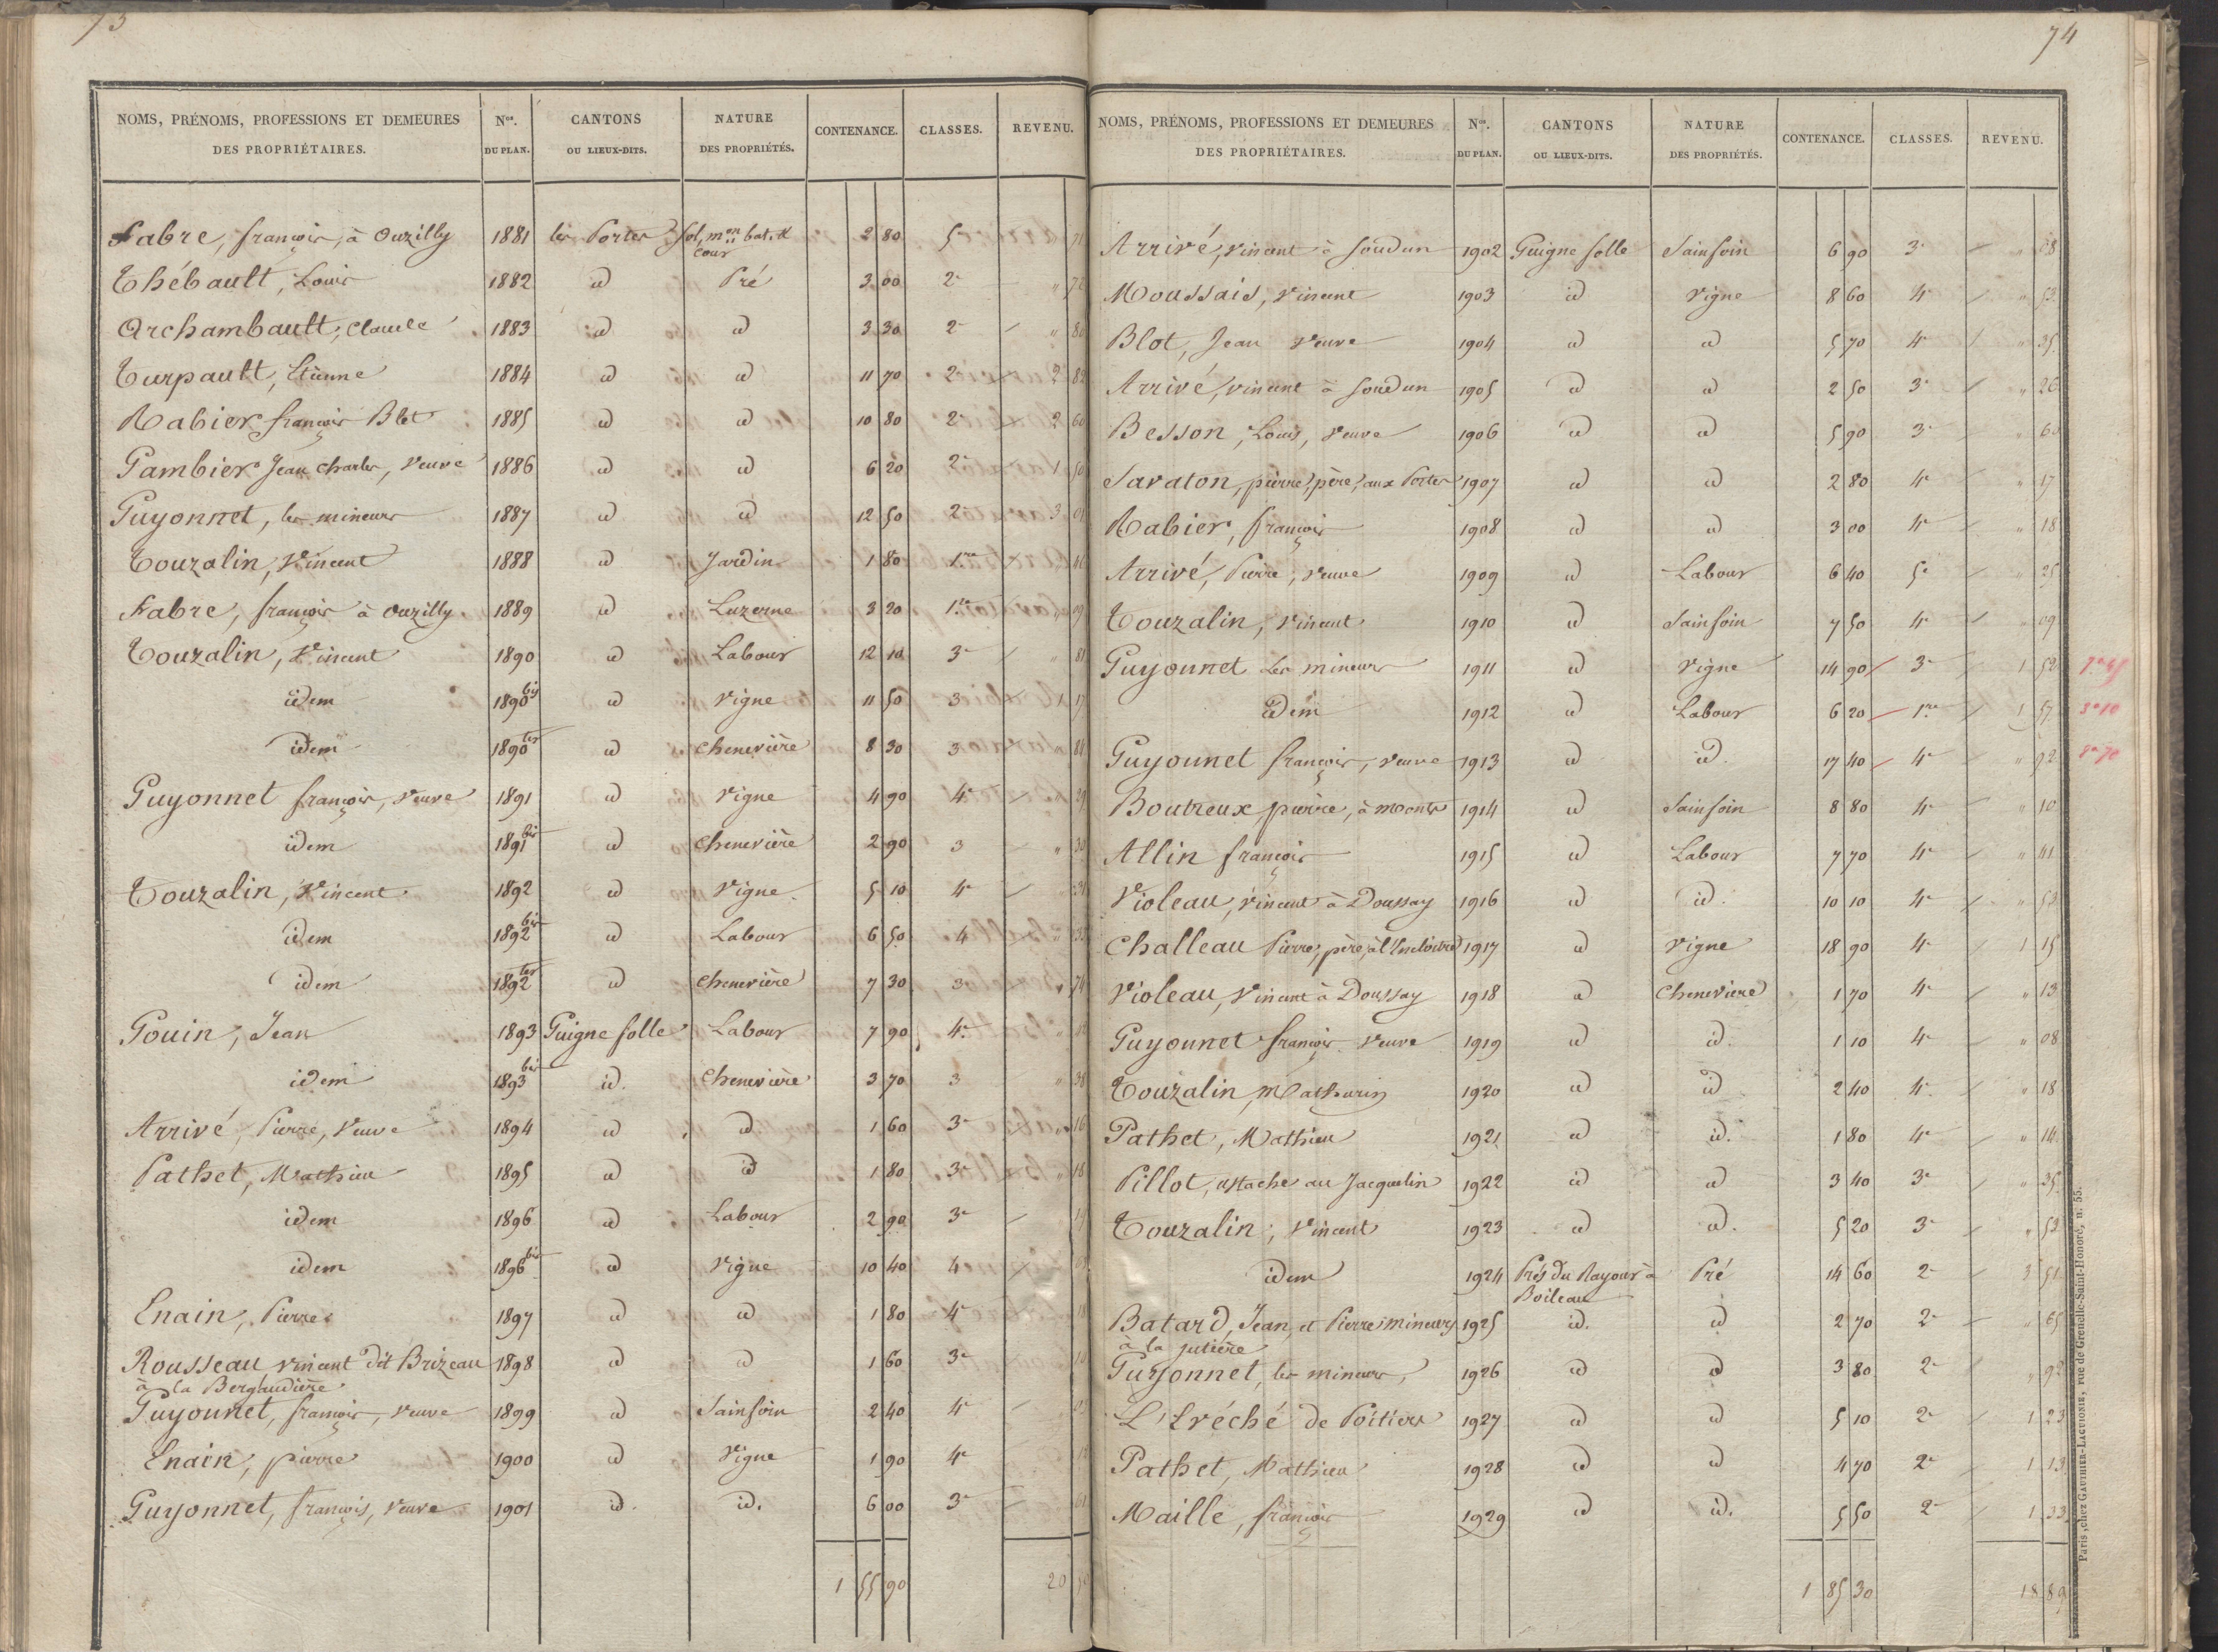 73
NOMS, PRÉNOMS, PROFESSIONS ET DEMEURES DES PROPRIÉTAIRES. Nos. DU PLAN. CANTONS OU LIEUX-DITS. NATURE DES PROPRIÉTÉS. CONTENANCE. CLASSES. REVENU.
Fabre, françois, à Ouzilly 1881 les Portes Sol, mon bat. et cour 2 80 5e
Thébault, Louis 1882 id Pré 3 00 2e
Archambault, Claude 1883 id id 3 30 2e " 80
Turpault, Etienne 1884 id id 11 70 2e 2 82
Rabier françois Blet 1885 id id 10 80 2e 2 60
Gambier Jean Charles, veuve 1886 id id 6 20 2e 1 50
Guyonnet, les mineurs 1887 id id 12 50 2e 3 01
Touzalin, Vincent 1888 id Jardin 1 80 1re
Fabre, françois à Ouzilly 1889 id Luzerne 3 20 1re
Touzalin, Vincent 1890 id Labour 12 10 3e " 81
idem 1890 bis id Vigne 11 50 3 1 17
idem 1890 ter id Chenevière 8 30 3 " 84
Guyonnet françois, veuve 1891 id Vigne 4 90 4e 29
idem 1891 bis id Chenevière 2 90 3 " 30
Touzalin, Vincent 1892 id Vigne 5 10 4e 31
idem 1892 bis id Labour 6 50 4
idem 1892 ter id Chenevière 7 30 3e " 74
Gouin, Jean 1893 Guigne folle Labour 7 90 4e
idem 1893 bis id. Chenevière 3 70 3 " 38
Arrivé, Pierre, veuve 1894 id id 1 60 3e 16
Pathet, Mathieu 1895 id id 1 80 3e " 18
idem 1896 id Labour 2 90 3e
idem 1896 bis id Vigne 10 40 4
Enain, Pierre 1897 id id 1 80 4e
Rousseau vincent dit Brizeau 1898 id id 1 60 3e
à la Bergaudière
Guyonnet, françois, veuve 1899 id Sainfoin 2 40 4e
Enain, pierre 1900 id Vigne 1 90 4e
Guyonnet, françois, veuve 1901 id. id. 6 00 3e 61
1 55 90 20
74
NOMS, PRÉNOMS, PROFESSIONS ET DEMEURES DES PROPRIÉTAIRES. Nos. DU PLAN. CANTONS OU LIEUX-DITS. NATURE DES PROPRIÉTÉS. CONTENANCE. CLASSES. REVENU.
Arrivé, vincent à Soudun 1902 Guigne folle Sainfoin 6 90 3e "
Moussais, vincent 1903 id Vigne 8 60 4e " 53
Blot, Jean veuve 1904 id id 5 70 4e 35
Arrivé, vincent à Soudun 1905 id id 2 50 3e " 26
Besson, Louis, veuve 1906 id id 5 90 3e " 60
Savaton, pierre, père, aux Portes 1907 id id 2 80 4e " 17
Rabier, françois 1908 id id 3 00 4e " 18
Arrivé, Pierre, veuve 1909 id Labour 6 40 5e " 25
Touzalin, vincent 1910 id Sainfoin 7 50 4e 09
Guyonnet les mineurs 1911 id Vigne 14 90 3e 1 52
idem 1912 id Labour 6 20 1re 1 57 3a 10
Guyonnet françois, veuve 1913 id id. 17 40 4e " 92 8a 70
Boutreux pierre, à monts 1914 id Sainfoin 8 80 4e " 10
Allin françois 1915 id Labour 7 70 4e " 41
Violeau, vincent à Doussay 1916 id id. 10 10 4e "
Challeau Pierre, père, à l'Encloitre 1917 id Vigne 18 90 4e 1 15
Violeau, vincent à Doussay 1918 id Cheneviere 1 70 4e " 13
Guyonnet françois veuve 1919 id id. 1 10 4e " 08
Touzalin, Mathurin 1920 id id 2 40 4e " 18
Pathet, Mathieu 1921 id id. 1 80 4e " 14
Pillot, ustache au Jacquelin 1922 id id 3 40 3e " 35
Touzalin, Vincent 1923 id id. 5 20 3e " 53
idem 1924 Prés du Rayour à Boileau Pré 14 60 2e 3 51
Batard, Jean et Pierre mineurs 1925 id. id 2 70 2e " 65
à la jutière
Guyonnet, les mineurs, 1926 id id 3 80 2e " 92
L'Evéché de Poitiers 1927 id id 5 10 2e 1 23
Pathet, Mathieu 1928 id id 4 70 2e 1 13
Maille, françois 1929 id id. 5 50 2e 1 33
1 85 30 18 89
Paris, chez GAUTHIER-LAGUIONIE, rue de Grenelle-Saint-Honoré, n. 55.